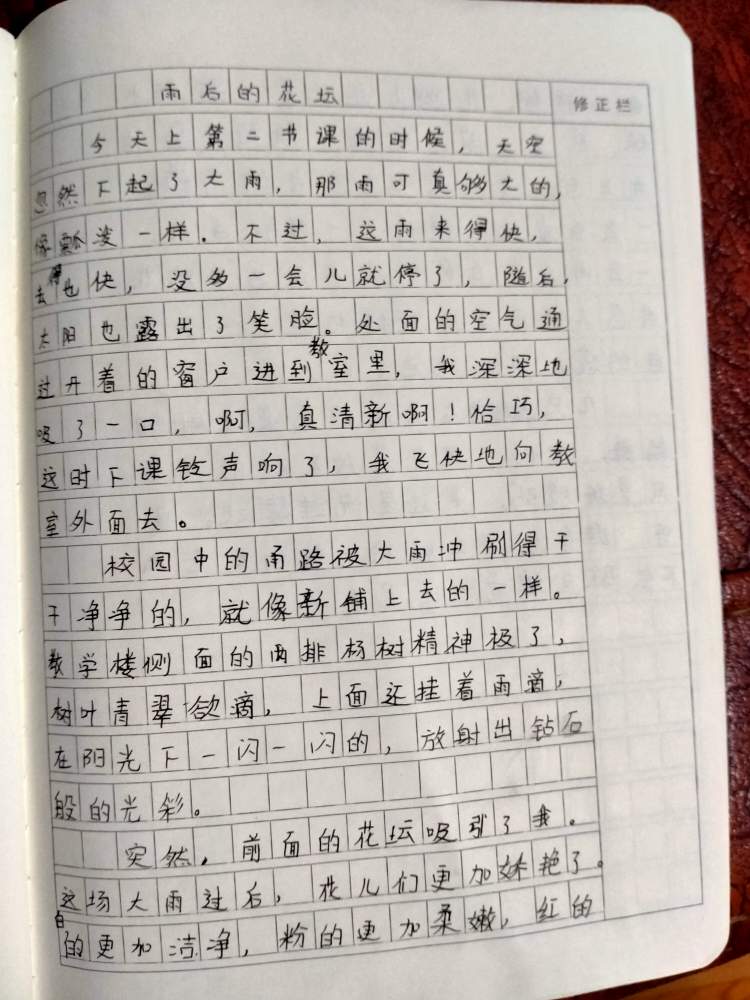 雨后的花坛
修正栏
今天上第二节课的时候，天空
忽然下起了大雨，那雨可真够大的，
像瓢泼一样。不过，这雨来得快，
去得也快，没多一会儿就停了，随后，
太阳也露出了笑脸。处面的空气通
过开着的窗户进到教室里，我深深地
吸了一口，啊，真清新啊！恰巧，
这时下课铃声响了，我飞快地向教
室外面去。
校园中的甬路被大雨冲刷得干
干净净的，就像新铺上去的一样。
教学楼侧面的两排杨树精神极了，
树叶青翠欲滴，上面还挂着雨滴，
在阳光下一闪一闪的，放射出钻石
般的光彩。
突然，前面的花坛吸引了我。
这场大雨过后，花儿们更加妖艳了。
白的更加洁净，粉的更加柔嫩，红的